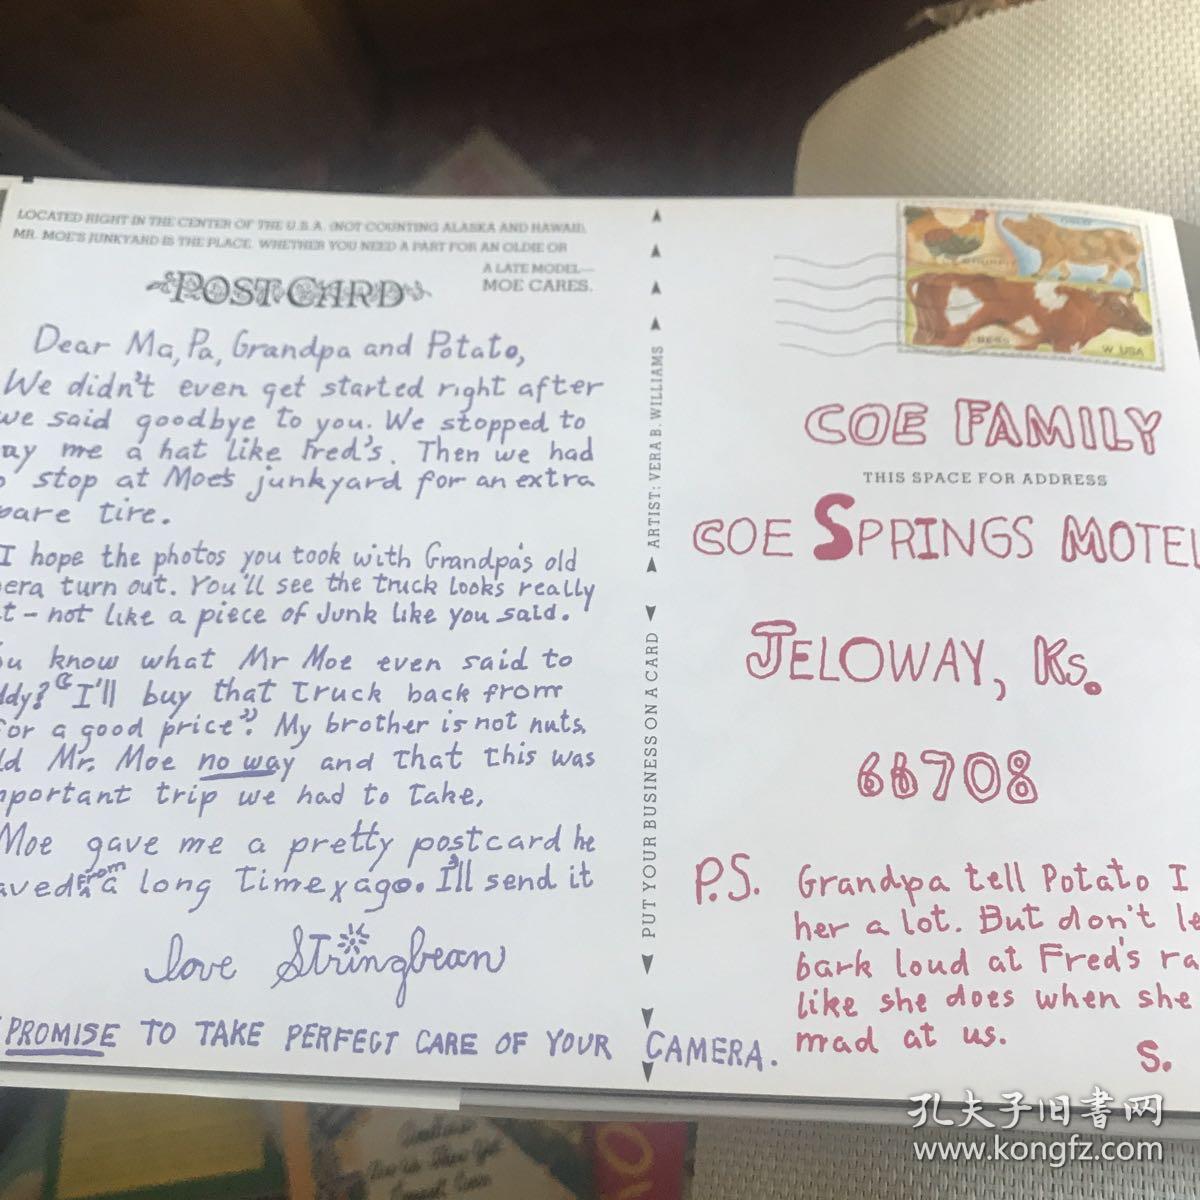 LOCATED RIGHT IN THE CENTER OF THE U.S.A. (NOT COUNTING ALASKA AND HAWAII),
MR. MOE'S JUNKYARD IS THE PLACE. WHETHER YOU NEED A PART FOR AN OLDIE OR
A LATE MODEL—
MOE CARES.
POST CARD
Dear Ma, Pa, Grandpa and Potato,
We didn't even get started right after
we said goodbye to you. We stopped to
ay me a hat like Fred's. Then we had
stop at Moe's junkyard for an extra
pare tire.
I hope the photos you took with Grandpa's old
era turn out. You'll see the truck looks really
t - not like a piece of Junk like you said.
ou know what Mr Moe even said to
ddy? "I'll buy that truck back from
for a good price". My brother is not nuts.
ld Mr. Moe no way and that this was
mportant trip we had to take.
Moe gave me a pretty postcard he
aved from a long time ago. I'll send it
love Stringbean
PROMISE TO TAKE PERFECT CARE OF YOUR CAMERA.
PUT YOUR BUSINESS ON A CARD
ARTIST: VERA B. WILLIAMS
BESS
W USA
COE FAMILY
THIS SPACE FOR ADDRESS
COE SPRINGS MOTEL
JELOWAY, Ks.
66708
P.S. Grandpa tell Potato I
her a lot. But don't le
bark loud at Fred's ra
like she does when she
mad at us.
S.
孔夫子旧書网
www.kongfz.com